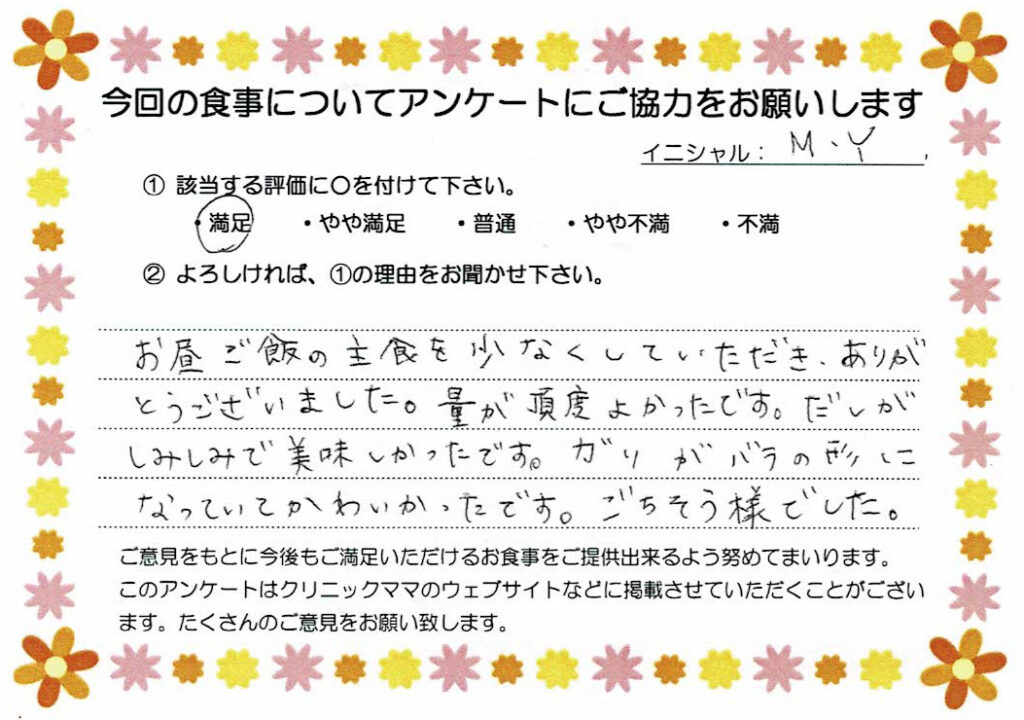 今回の食事についてアンケートにご協力をお願いします
イニシャル： M、Y
① 該当する評価に〇を付けて下さい。
・満足 ・やや満足 ・普通 ・やや不満 ・不満
② よろしければ、①の理由をお聞かせ下さい。
お昼ご飯の主食を少なくしていただき、ありが
とうございました。量が頂度よかったです。だしが
しみしみで美味しかったです。ガリがバラの形に
なっていてかわいかったです。ごちそう様でした。
ご意見をもとに今後もご満足いただけるお食事をご提供出来るよう努めてまいります。
このアンケートはクリニックママのウェブサイトなどに掲載させていただくことがござい
ます。たくさんのご意見をお願い致します。